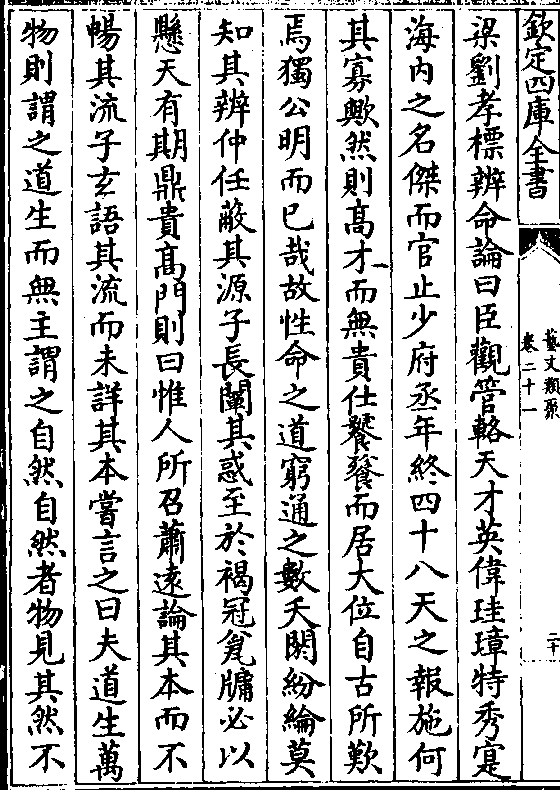 欽定四庫全書
藝文類聚
卷二十一
二十
梁劉孝標辨命論曰臣觀管輅天才英偉珪璋特秀寔
海內之名傑而官止少府丞年終四十八天之報施何
其寡歟然則高才而無貴仕饕餮而居大位自古所歎
焉獨公明而已哉故性命之道窮通之數夭閼紛綸莫
知其辨仲任蔽其源子長闡其惑至於褐冠瓮牖必以
懸天有期鼎貴高門則曰惟人所召蕭遠論其本而不
暢其流子玄語其流而未詳其本嘗言之曰夫道生萬
物則謂之道生而無主謂之自然自然者物見其然不